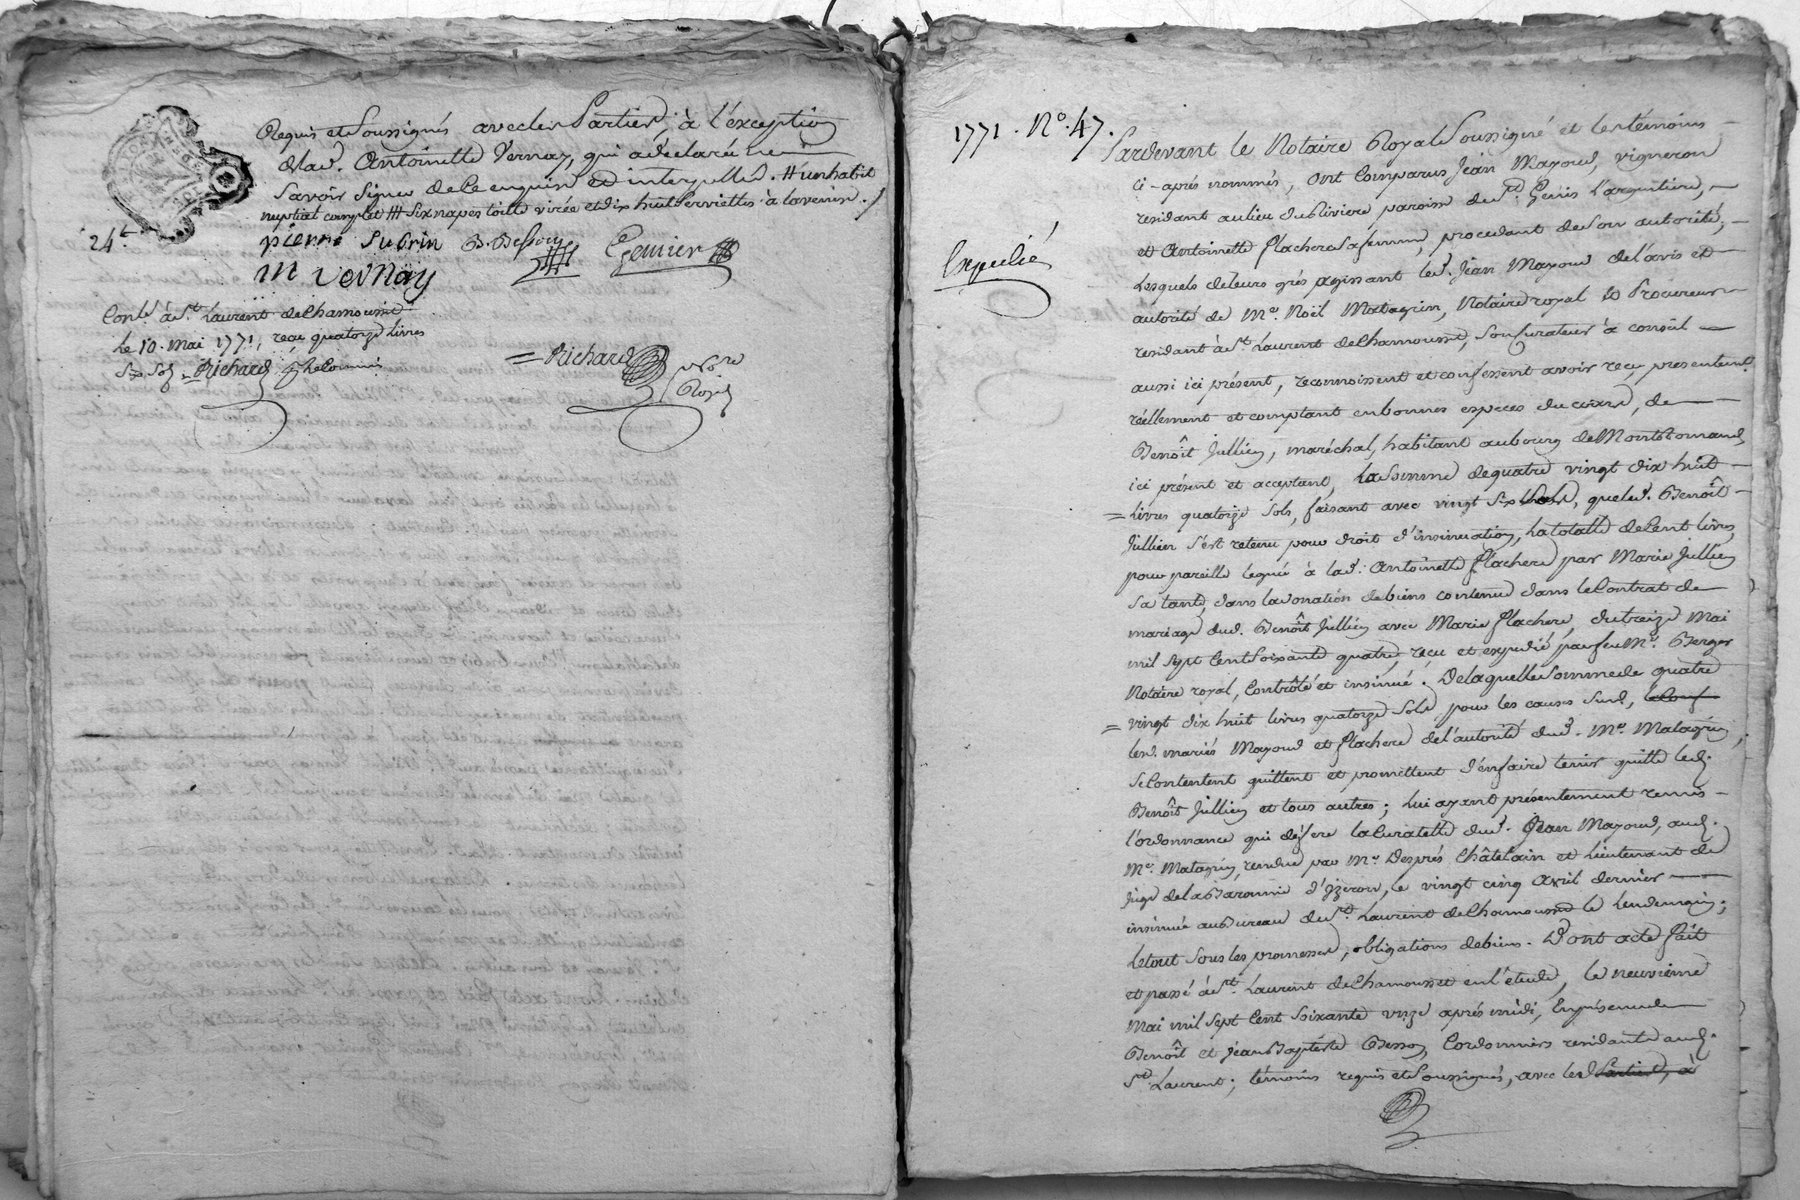 Requis et Soussignés avec les Parties, à l'éxception
de lad. Antoinette Vernay, qui a déclaré ne
Savoir Signer de ce enquise et interpellée. # un habit
nuptial complet ## Six napes toille virée et dix huit serviettes à la venise./
24.
pierre Subrin B. Besson Grenier
m vernay
Conlé. à St. Laurent de Chamousset
Le 10. Mai 1771, reçu quatorze livres
Six Sols Richard
= Richard Nore
Royal
1771. No. 47.
Expédié
Pardevant le Notaire Royal Soussigné et les témoins
Ci-après nommés, ont Comparus Jean Mayoud, vigneron
residant au lieu du paroisse de St. Genis l'argentiere,
et Antoinette flachere Sa femme, procedant de Son autorité,
Lesquels de leurs grés agissant led. Jean Mayoud de l'avis et
autorité de Me. Noël Matagrin, Notaire royal & Procureur
residant à St. Laurent de Chamousset, Son Curateur à conseil
aussi ici présent, reconnoissent et confessent avoir reçu presentemt.
réellement et comptant en bonnes especes du cours, de
Benoît Jullien, maréchal, habitant au bourg de Montromand,
ici présent et acceptant, La Somme de quatre vingt dix huit
= Livres quatorze Sols, faisant avec vingt Six Sols, que led. Benoît
Jullien s'est retenu pour droit d'insinuation, La totalle de Cent livres
pour pareille leguée à lad. Antoinette flachere par Marie Jullien
Sa tante, dans la donation de biens contenue dans le Contrat de
mariage dud. Benoît Jullien avec Marie flachere, du treize Mai
mil Sept Cent Soixante quatre, reçu et expedié par feu Me. Berger
Notaire royal, Contrôlé et insinué. De laquelle Somme de quatre
= vingt dix huit livres quatorze Sols pour les causes Susd,
lesd. mariés Mayoud et flachere de l'autorité dud. Me. Matagrin,
Se Contentent quittent et promettent d'en faire tenir quitte led.
Benoît Jullien et tous autres; Lui ayant présentement remis
l'ordonnance qui défere la Curatelle dud. Jean Mayoud, aud.
Me. Matagrin, rendue par Me. Després Châtelain et Lieutenant de
Juge de la Baronnie d'Yzeron, le vingt cinq avril dernier
insinuée au Bureau de St. Laurent de Chamousset le Lendemain;
Le tout Sous les promesses, obligations de biens. Dont acte fait
et passé à St. Laurent de Chamousset en l'étude, le neuvieme
Mai mil Sept Cent Soixante onze après midi, En présence de
Benoît et Jean Baptiste Besson, Cordonniers residants aud.
St. Laurent; témoins requis et Soussignés, avec lesd Parties, à